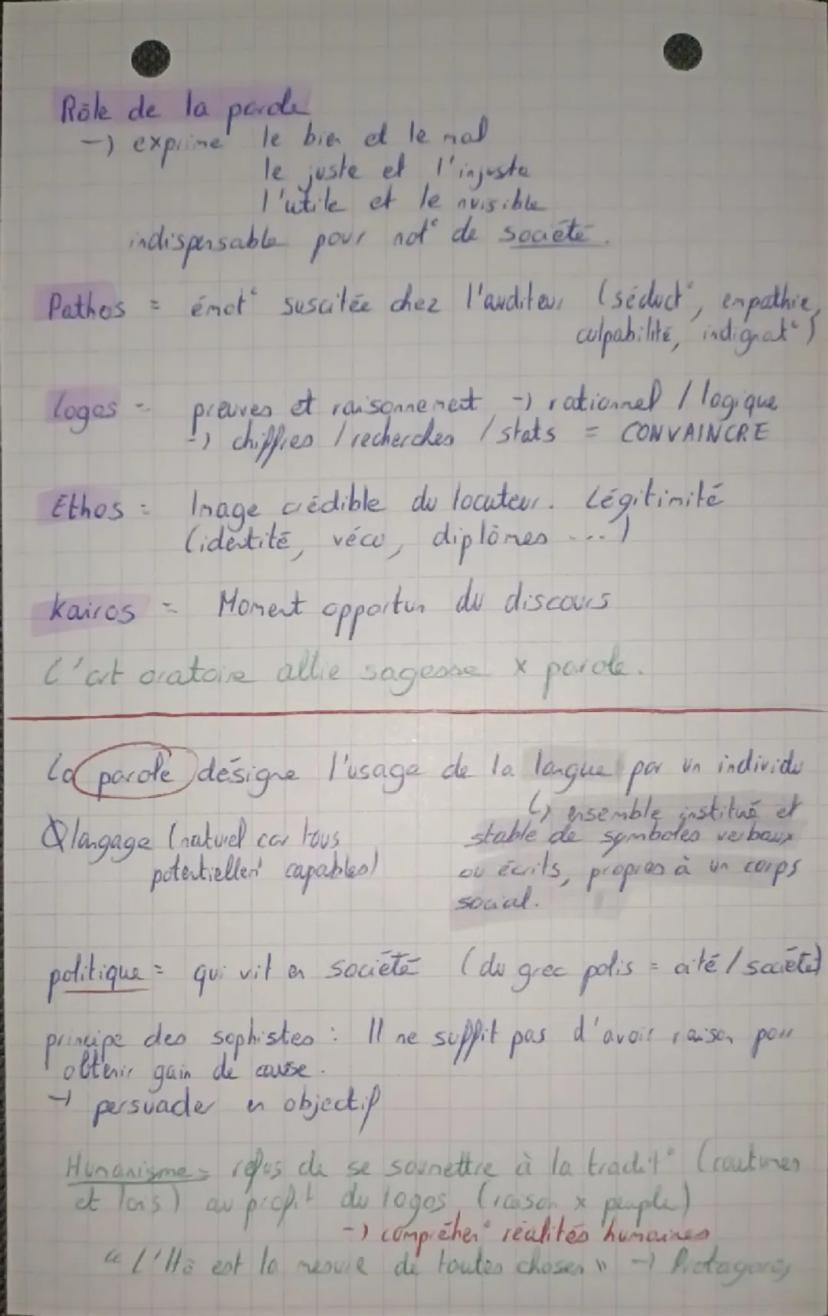 Rôle de la parole
→ exprime le bien et le mal
le juste et l'injuste
l'utile et le nuisible
indispensable pour not° de société.
Pathos = émot° suscitée chez l'auditeur (séduct°, empathie,
culpabilité, indignat°)
logos = preuves et raisonnement → rationnel / logique
→ chiffres / recherches / stats = CONVAINCRE
Ethos = Image crédible du locuteur. Légitimité
(identité, vécu, diplômes ...)
kairos = Moment opportun du discours
L'art oratoire allie sagesse x parole.
La parole désigne l'usage de la langue par un individu
↳ ensemble institué et
stable de symboles verbaux
ou écrits, propres à un corps
social.
langage (naturel car tous
potentiellem¹ capables)
politique = qui vit en société (du grec polis = cité / société)
principe des sophistes : Il ne suffit pas d'avoir raison pour
obtenir gain de cause.
→ persuader en objectif
Humanisme = refus de se soumettre à la tradit° (coutumes
et lois) au profit du logos (raison x peuple)
→ compréhen° réalités humaines
"L'H° est la mesure de toutes choses" → Protagoras